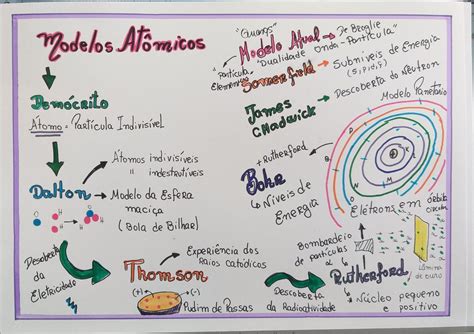 Modelos Atômicos
Demócrito
Átomo = Partícula Indivisível
Dalton
Átomos indivisíveis
"
indestrutíveis
Modelo da Esfera
maciça
(Bola de Bilhar)
Descoberta
da
Eletricidade
Thomson
Experiência dos
Raios catódicos
(+)
(-)
Pudim de Passas
Descoberta
da Radioatividade
Rutherford
Bombardeio
de partículas
α
lâmina
de ouro
Núcleo pequeno
e positivo
Bohr
+Rutherford
Níveis de
Energia
Modelo Planetário
Elétrons em órbita
circular
James
Chadwick
Descoberta do Neutron
Sommerfield
Subníveis de Energia
(s, p, d, f)
Modelo Atual
"Quarks"
Partícula
Elementar
De Broglie
"Dualidade onda-Partícula"